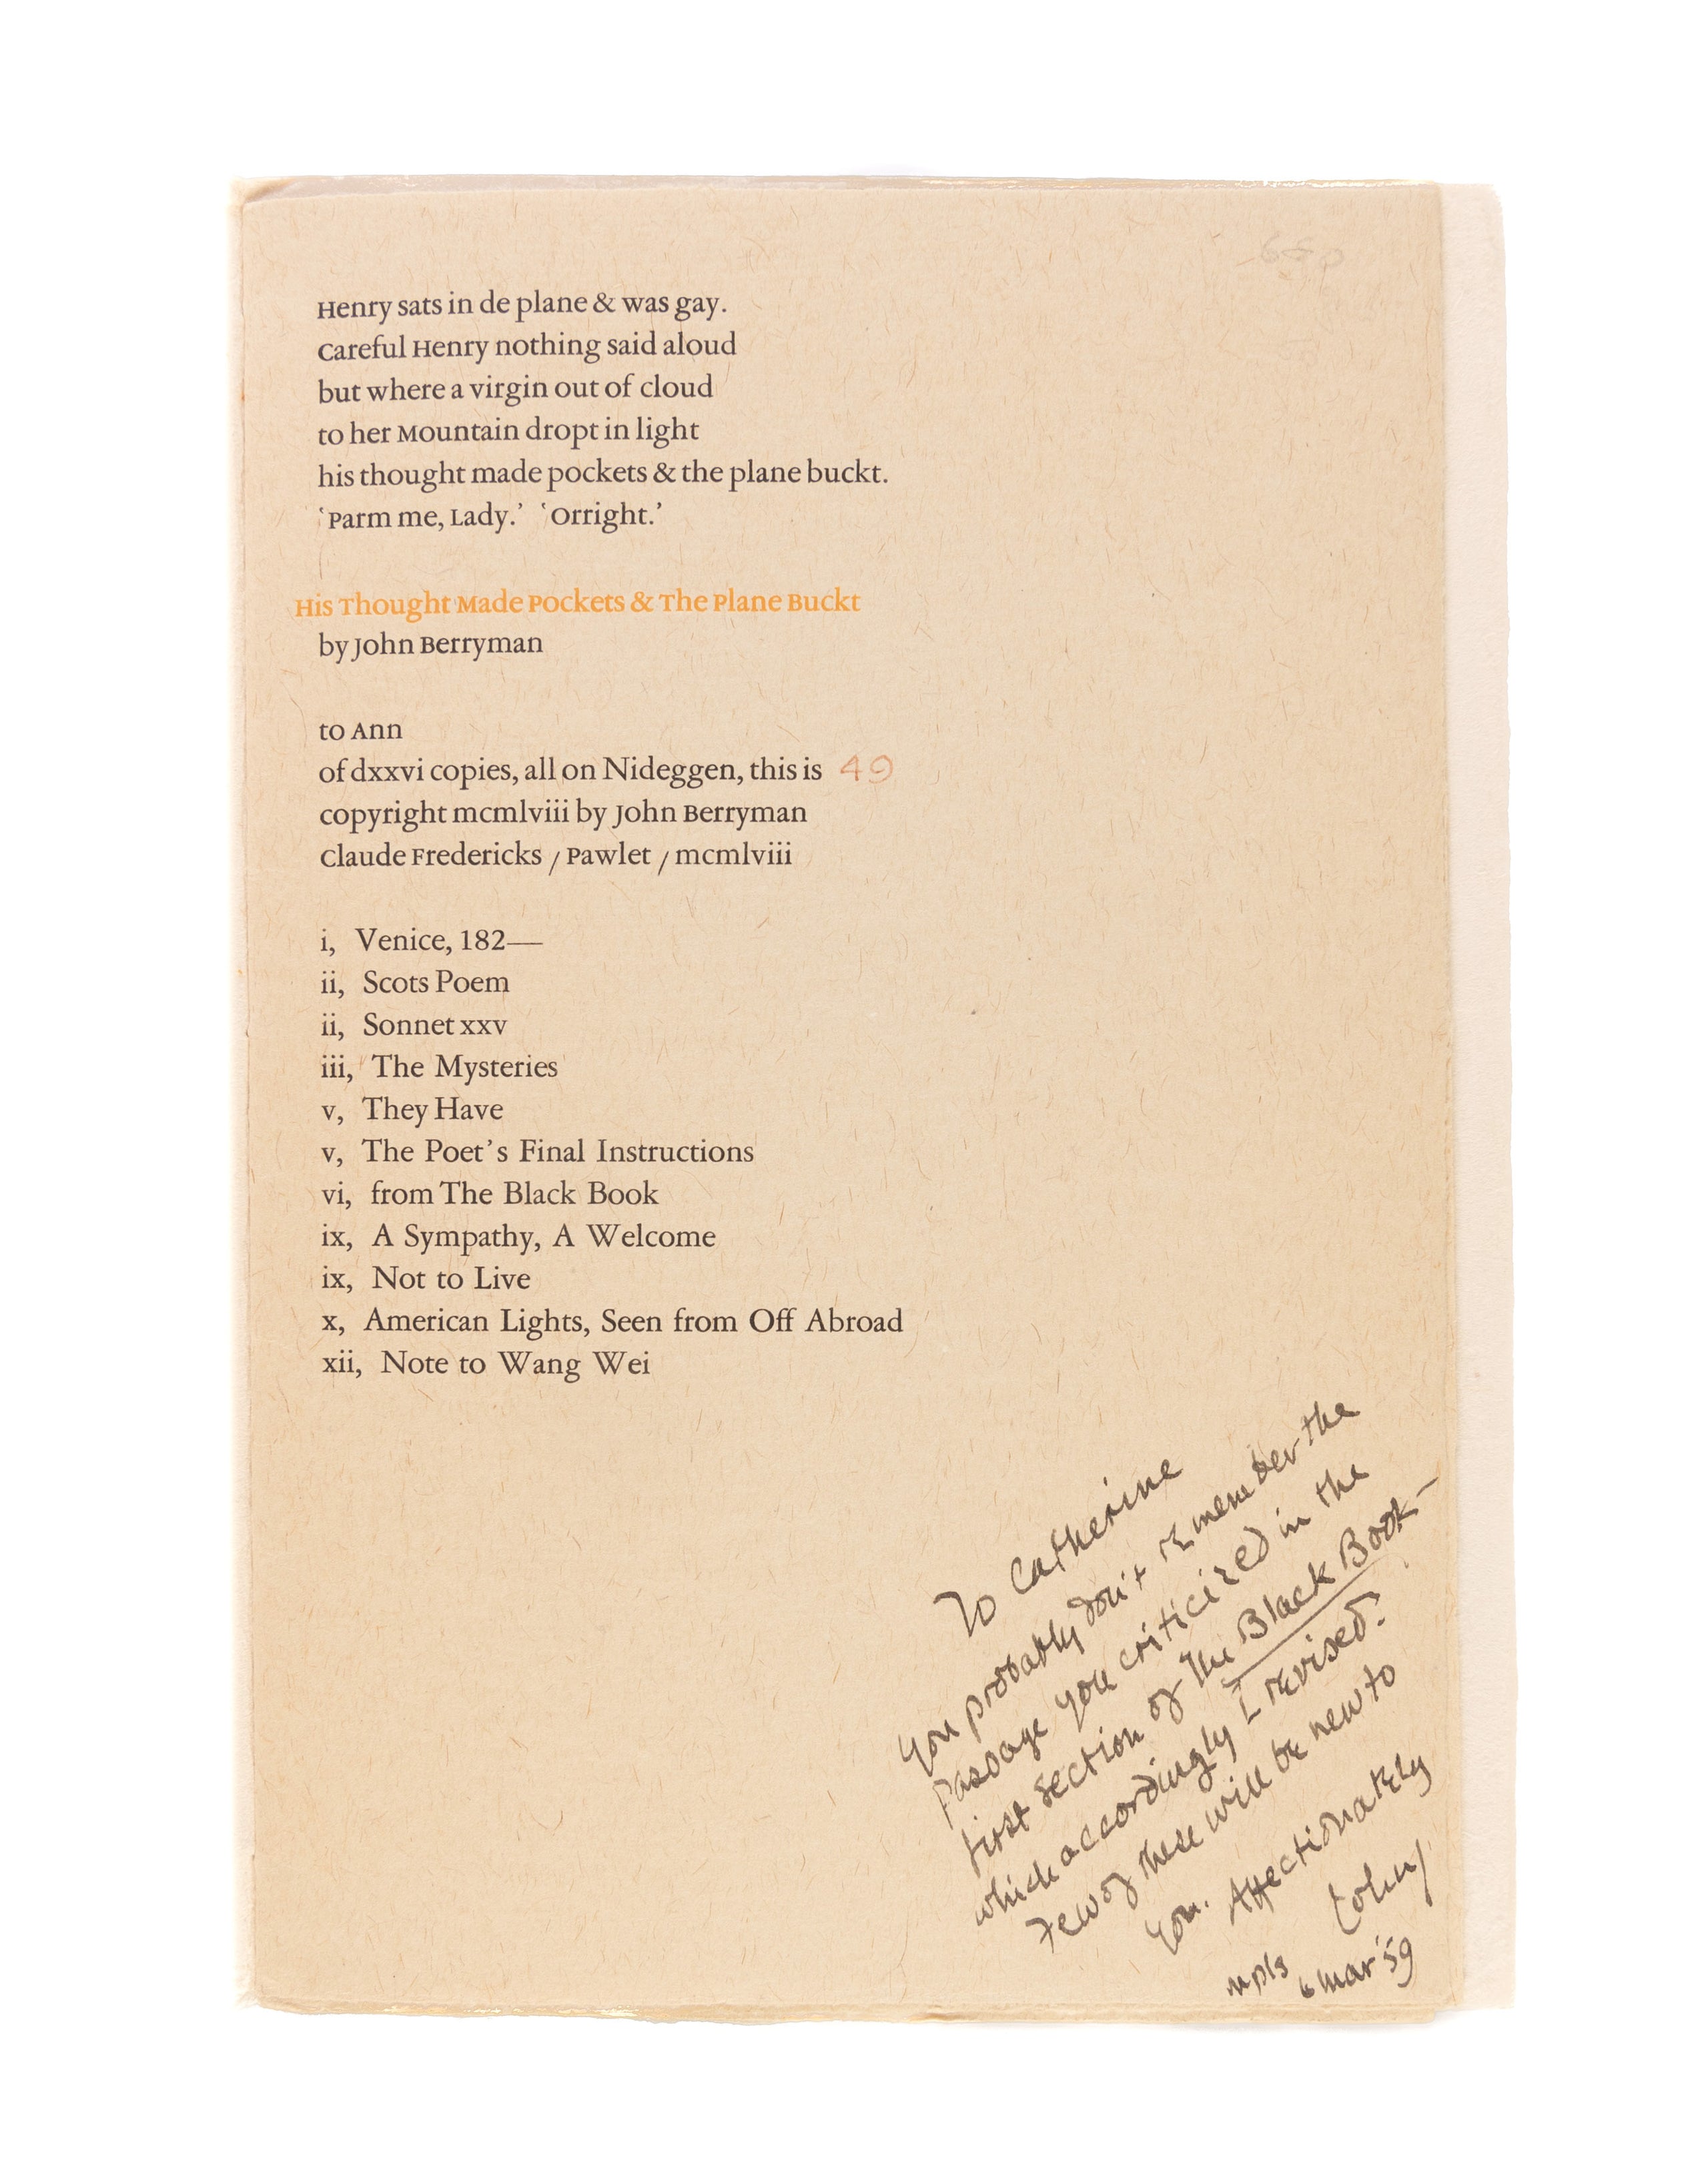 Henry sats in de plane & was gay.
Careful Henry nothing said aloud
but where a virgin out of cloud
to her Mountain dropt in light
his thought made pockets & the plane buckt.
‘Parm me, Lady.’ ‘Orright.’
His Thought Made Pockets & The Plane Buckt
by John Berryman
to Ann
of dxxvi copies, all on Nideggen, this is 49
copyright mcmlviii by John Berryman
Claude Fredericks / Pawlet / mcmlviii
i, Venice, 182—
ii, Scots Poem
ii, Sonnet xxv
iii, The Mysteries
v, They Have
v, The Poet’s Final Instructions
vi, from The Black Book
ix, A Sympathy, A Welcome
ix, Not to Live
x, American Lights, Seen from Off Abroad
xii, Note to Wang Wei
To Catherine
You probably don't remember the
passage you criticized in the
first section of The Black Book—
which accordingly I revised.
Few of these will be new to
you. Affectionately
John
Mpls 6 Mar '59